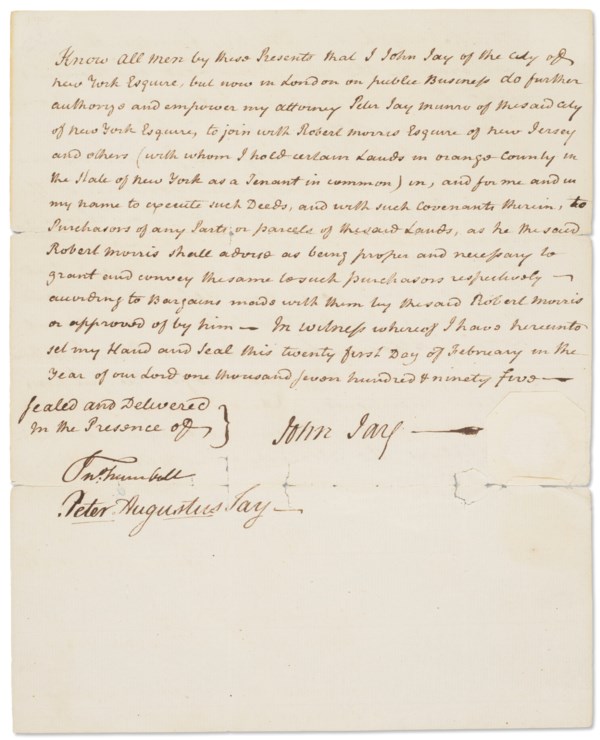 Know all men by these Presents that I John Jay of the City of
New York Esquire, but now in London on public Business do further
authorize and empower my attorney Peter Jay Munro of the said City
of New York Esquire, to join with Robert Morris Esquire of New Jersey
and others (with whom I hold certain Lands in orange County in
the State of New York as a Tenant in common) in, and for me and in
my name to execute such Deeds, and with such Covenants therein, to
Purchasors of any Parts or parcels of the said Lands, as he the said
Robert Morris shall advise as being proper and necessary to
grant and convey the same to such purchasors respectively —
according to Bargains made with them by the said Robert Morris
or approved of by him — In witness whereof I have hereunto
set my Hand and Seal this twenty first Day of February in the
Year of our Lord one thousand seven hundred & ninety five —
Sealed and Delivered
In the Presence of
John Jay —
Jno Trumbull
Peter Augustus Jay —